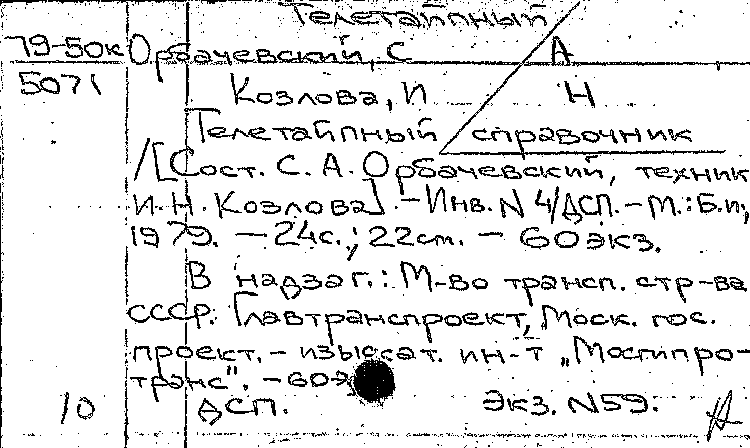 Телетайпный
79-50к Орбачевский, С А
5071 Козлова, И Н
Телетайпный справочник
/[Сост. С. А. Орбачевский, техник
И. Н. Козлова]. – Инв. N 4/ДСП. – М.: Б.и.,
1979. – 24с.; 22см. – 60экз.
В надзаг.: М-во трансп. стр-ва
СССР. Главтранспроект, Моск. гос.
проект. – изыскат. ин-т „Мосгипро-
транс". –
10 ДСП. Экз. N59.